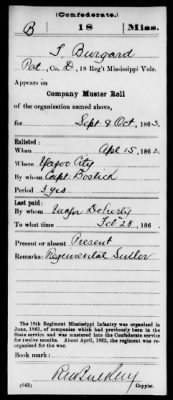 (Confederate.)
B 18 Miss.
T Burgard
Pvt, Co. D, 18 Reg't Mississippi Vols.
Appears on
Company Muster Roll
of the organization named above,
for Sept & Oct, 1863.
Enlisted:
When Apl 15, 1862.
Where Yazoo City
By whom Capt. Bostick
Period 3 yrs
Last paid:
By whom Major Doherty
To what time Feb 28, 186
Present or absent Present
Remarks: Regimental Sutler
The 18th Regiment Mississippi Infantry was organized in
June, 1861, of companies which had previously been in the
State service and was mustered into the Confederate service
for twelve months. About April, 1862, the regiment was re-
organized for the war.
Book mark:
(642) Copyist.